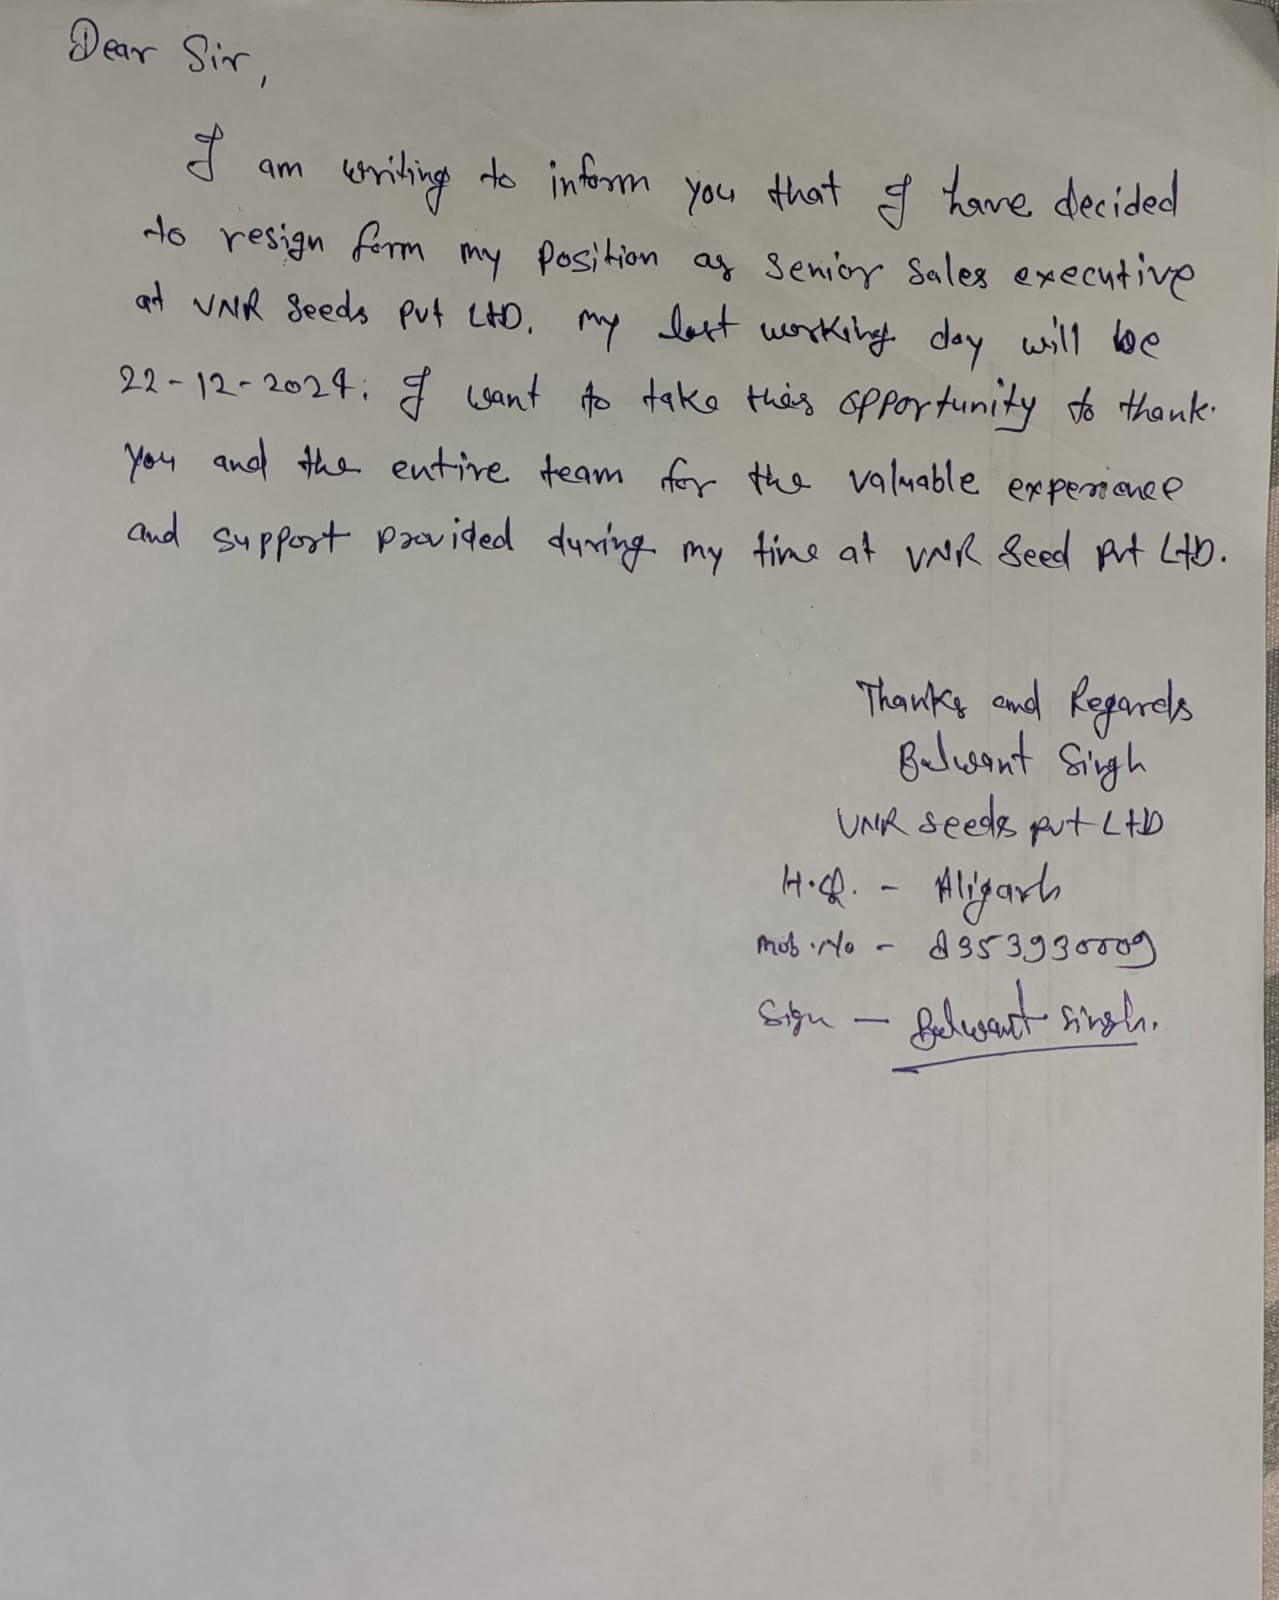 Dear Sir,
I am writing to inform you that I have decided
to resign form my position as senior sales executive
at VNR Seeds Pvt LtD. my last working day will be
22-12-2024. I want to take this opportunity to thank
you and the entire team for the valuable experience
and support provided during my time at VNR Seed Pvt LtD.
Thanks and Regards
Balwant Singh
VNR seeds pvt LtD
H.Q. - Aligarh
Mob. No -
Sign - Balwant Singh.